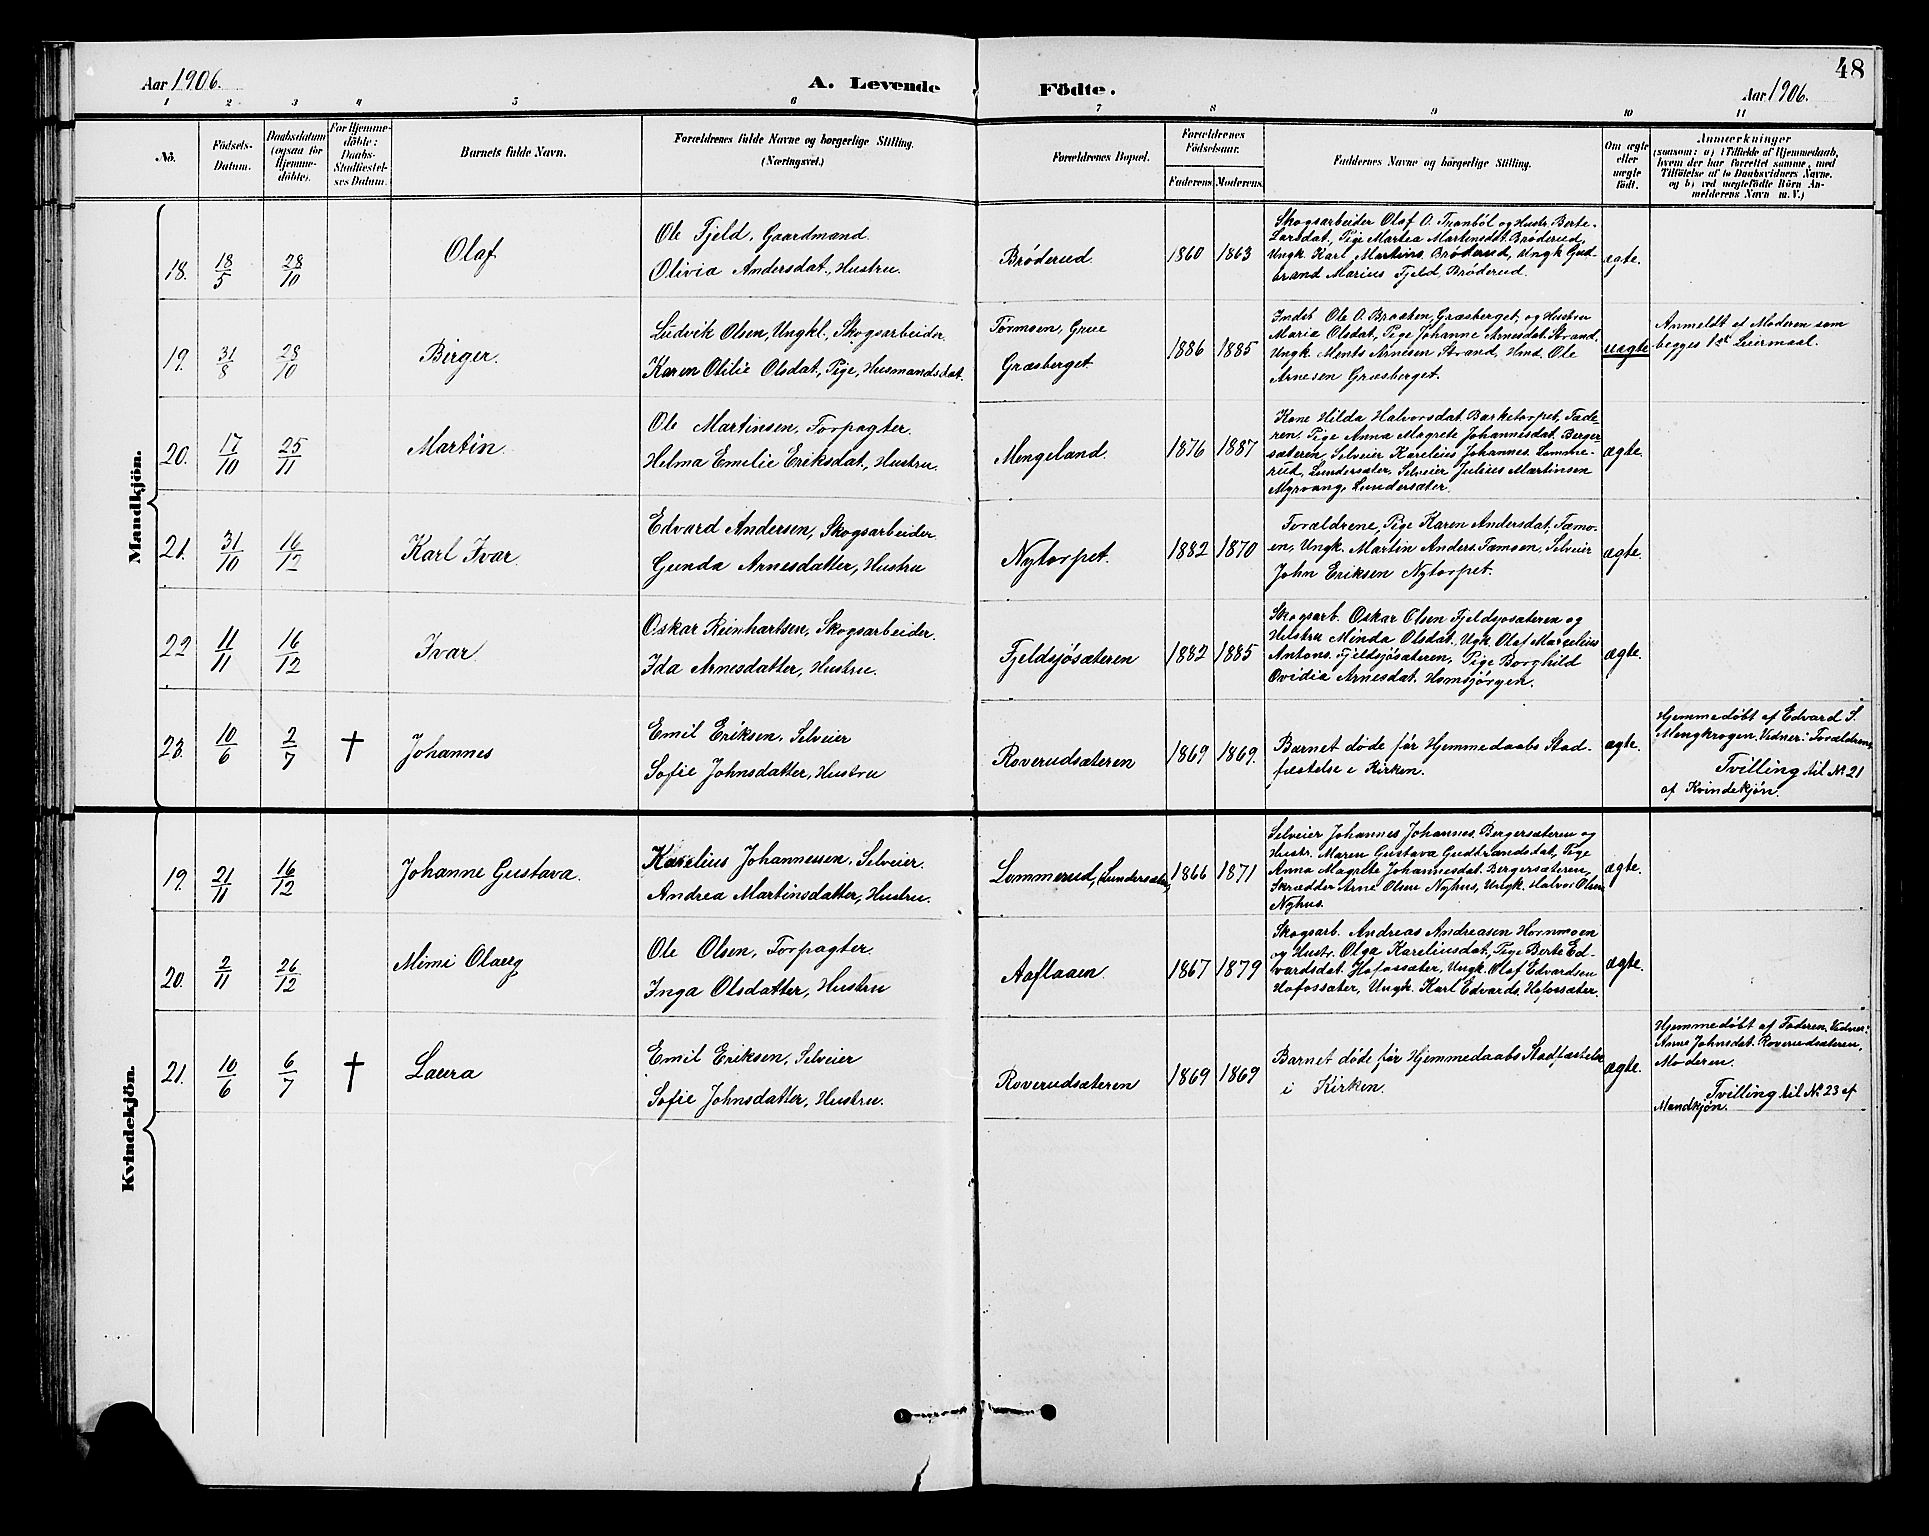 48
Aar 1906.
A. Levende Födte.
Aar 1906.
1 2 3 4 5 6 7 8 9 10 11
No.
Födsels-
Datum.
Daabsdatum
(ogsaa for
Hjemme-
döbte).
For Hjemme-
döbte:
Daabs-
Stadfæstel-
ses Datum.
Barnets fulde Navn.
Forældrenes fulde Navne og borgerlige Stilling.
(Næringsvei.)
Forældrenes Bopæl.
Forældrenes
Födselsaar.
Faderens Moderens.
Faddernes Navne og borgerlige Stilling.
Om ægte
eller
uægte
födt.
Anmærkninger
(saasom: a) i Tilfælde af Hjemmedaab,
hvem der har forrettet samme, med
Tilföielse af to Daabsvidners Navne.
og b) ved uægtefödte Börn An-
melderens Navn m. V.)
Mandkjön.
18. 18/5 28/10
Olaf
Ole Fjeld, Gaardmand.
Olivia Andersdat, Hustru.
Bröderud.
1860 1863
Skogsarbeider Olaf O. Tranböl og Hustr. Berte
Larsdat, Pige Martea Martinsdt. Bröderud,
Ungk Karl Martins. Bröderud, Ungk Gud-
brand Marius Fjeld, Bröderud.
ægte.
19. 31/8 28/10
Birger.
Ludvik Olsen, Ungkl. Skogsarbeider.
Karen Otilie Olsdat, Pige, Husmandsdat.
Tørmoen, Grue
Græsberget.
1886 1885
Indst Ole O. Braaten, Græsberget, og Hustru
Maria Olsdat, Pige Johanne Arnesdat. Strand,
Ungk. Ments Arnesen Strand, Hmd. Ole
Arnesen Græsberget.
uægte
Anmeldt af Moderen som
begges 1st Leiermaal.
20. 17/10 25/11
Martin.
Ole Martinsen, Forpagter.
Hilma Emilie Eriksdat, Hustru.
Mengeland.
1876 1887
Kone Hilda Halvorsdat. Barketorpet, Fade-
ren, Pige Anna Magrete Johannesdat. Berger
sæteren, Selveier Karelius Johannes. Lomme-
rud, Lundersæter, Selveier Julius Martinsen
Myrvang, Lundersæter.
ægte.
21. 31/10 16/12
Karl Ivar.
Edvard Andersen, Skogsarbeider
Gunda Arnesdatter, Hustru
Nytorpet.
1882 1870
Forældrene, Pige Karen Andersdat, Tæmo-
en, Ungk. Martin Anders. Tæmoen, Selveier
John Eriksen Nytorpet.
ægte.
22 11/11 16/12
Ivar.
Oskar Reinhartsen, Skogsarbeider.
Ida Arnesdatter, Hustru.
Fjeldsjösæteren
1882 1885
Skogsarb. Oskar Olsen Fjeldsjosæteren og
Hustru Minda Olsdat. Ugk. Olaf Marselius
Antons. Fjeldsjösæteren, Pige Borghild
Ovidia Arnesdat. Homsjörgen.
ægte.
23. 10/6 2/7 †
Johannes
Emil Eriksen. Selveier
Sofie Johnsdatter, Hustru
Roverudsæteren
1869 1869.
Barnet døde før Hjemmedaabs Stad-
fæstelse i Kirken.
ægte.
Hjemmedøbt af Edvard S.
Mengkrogen. Vidner: Forældrene
Tvilling til N. 21
af Kvindekjön.
Kvindekjön.
19. 21/11 16/12
Johanne Gustava.
Karelius Johannessen. Selveier.
Andrea Martinsdatter, Hustru.
Lommerud, Lundersæter,
1866 1871
Selveier Johannes Johannes. Bergersæteren og
Hustr. Maren Gustava Gudbrandsdat, Pige
Anna Magrete Johannesdat. Bergersæteren,
Skrædder Arne Olsen Nyhus, Ungk. Halvor Olsen
Nyhus.
ægte.
20. 2/11 26/12
Mimi Olaug
Ole Olsen, Forpagter.
Inga Olsdatter, Hustru
Aaflaaen.
1867 1879
Skogsarb. Andreas Andreasen Hornmoen
og Hustr. Olga Kareliusdat, Pige Berte Ed-
vardsdat. Hofossæter, Ungk. Olaf Edvardsen
Hofossæter, Ungk. Karl Edvards. Hofossæter.
ægte.
21. 10/6 6/7 †
Laura
Emil Eriksen, Selveier
Sofie Johnsdatter, Hustru.
Roverudsæteren
1869 1869
Barnet døde før Hjemmedaabs Stadfæstelse
i Kirken.
ægte.
Hjemmedøbt af Faderen. Vidner:
Anne Johnsdat. Roverudsæteren,
Moderen.
Tvilling til N. 23 af
Mandkjön.